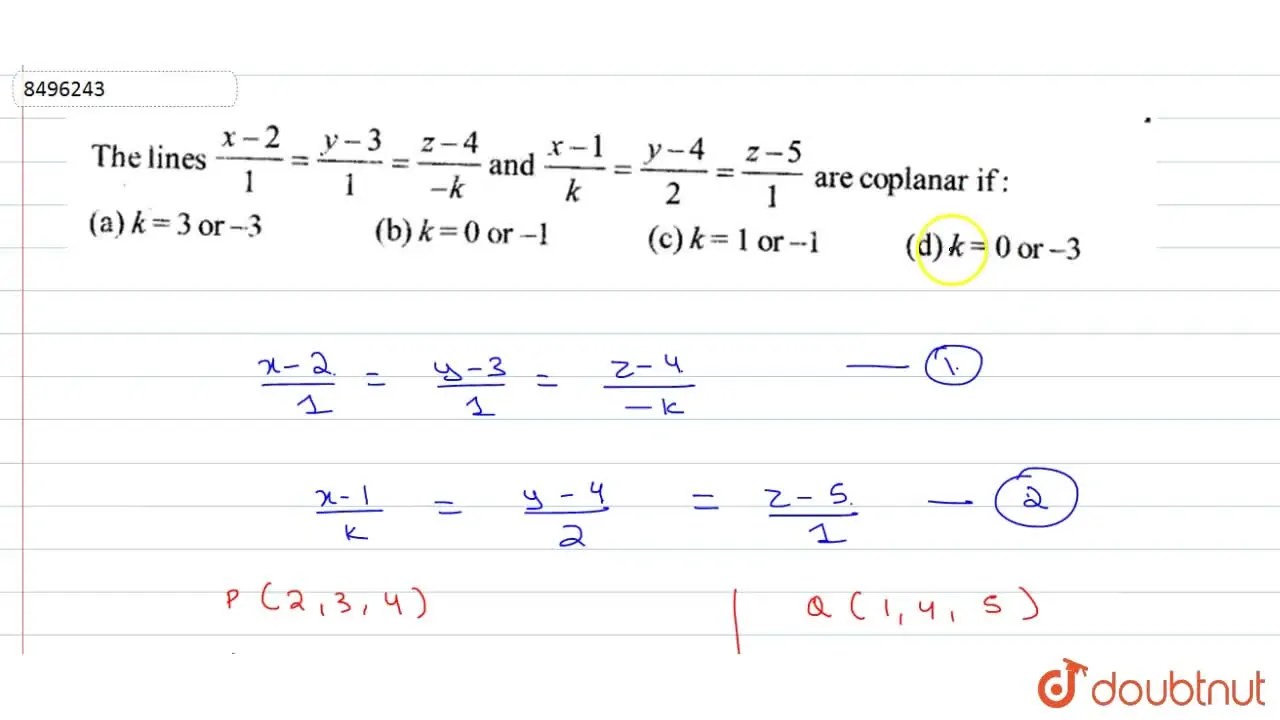 8496243
The lines \frac{x-2}{1} = \frac{y-3}{1} = \frac{z-4}{-k} and \frac{x-1}{k} = \frac{y-4}{2} = \frac{z-5}{1} are coplanar if :
(a) k = 3 or -3 (b) k = 0 or -1 (c) k = 1 or -1 (d) k = 0 or -3
\frac{x-2}{1} = \frac{y-3}{1} = \frac{z-4}{-k} — 1.
\frac{x-1}{k} = \frac{y-4}{2} = \frac{z-5}{1} — 2
P (2, 3, 4) | Q (1, 4, 5)
doubtnut